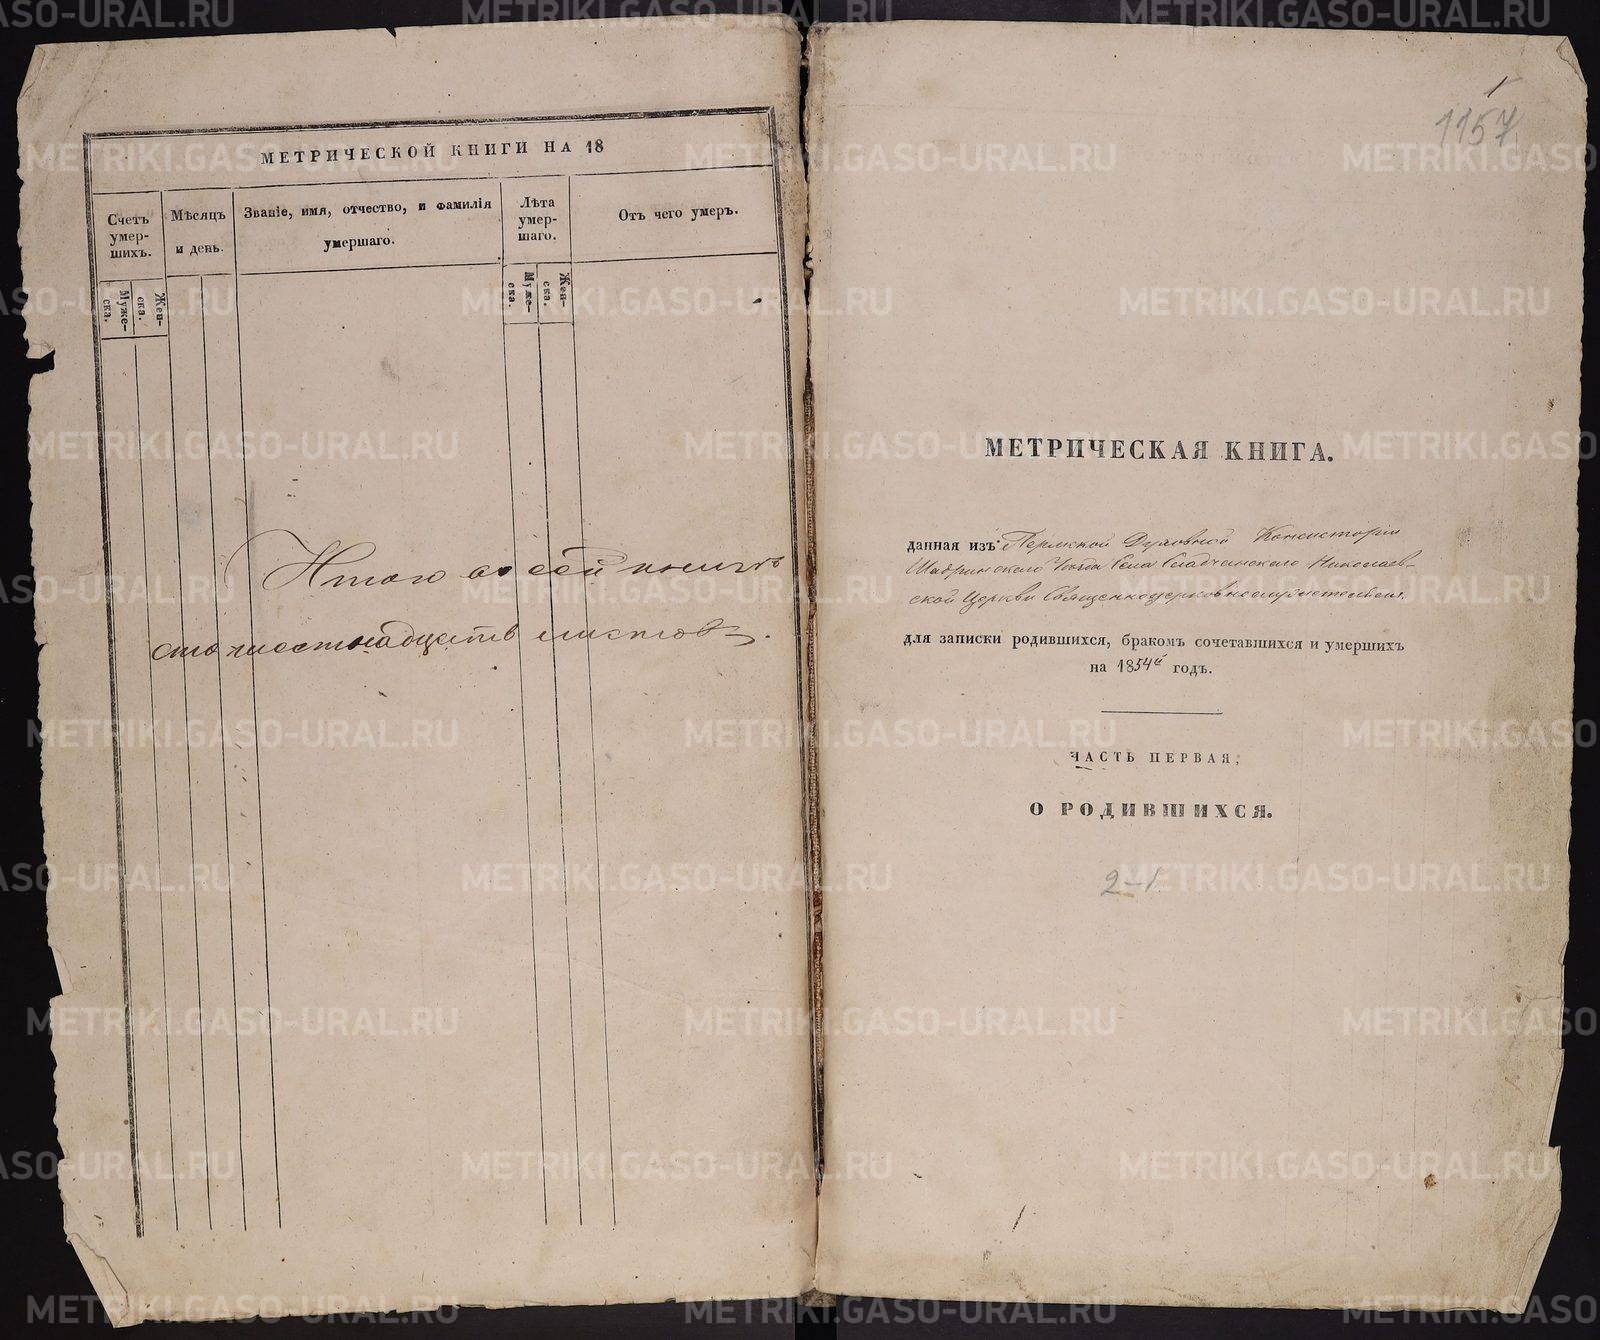 МЕТРИЧЕСКОЙ КНИГИ НА 18
Счетъ умер-шихъ.
Мѣсяцъ и день.
Званіе, имя, отчество, и фамилія умершаго.
Лѣта умер-шаго.
Отъ чего умеръ.
Муже-ска.
Жен-ска.
Муже-ска.
Жен-ска.
Итого въ сей книгѣ
сто шестнадцать листовъ.
1
1157
МЕТРИЧЕСКАЯ КНИГА.
данная изъ Пермской Духовной Консисторіи
Шадринскаго Уѣзда Села Сладчанскаго Николаев-
ской Церкви Священноцерковнослужителямъ.
для записки родившихся, бракомъ сочетавшихся и умершихъ
на 1854й годъ.
ЧАСТЬ ПЕРВАЯ,
О РОДИВШИХСЯ.
2-1
1
METRIKI.GASO-URAL.RU